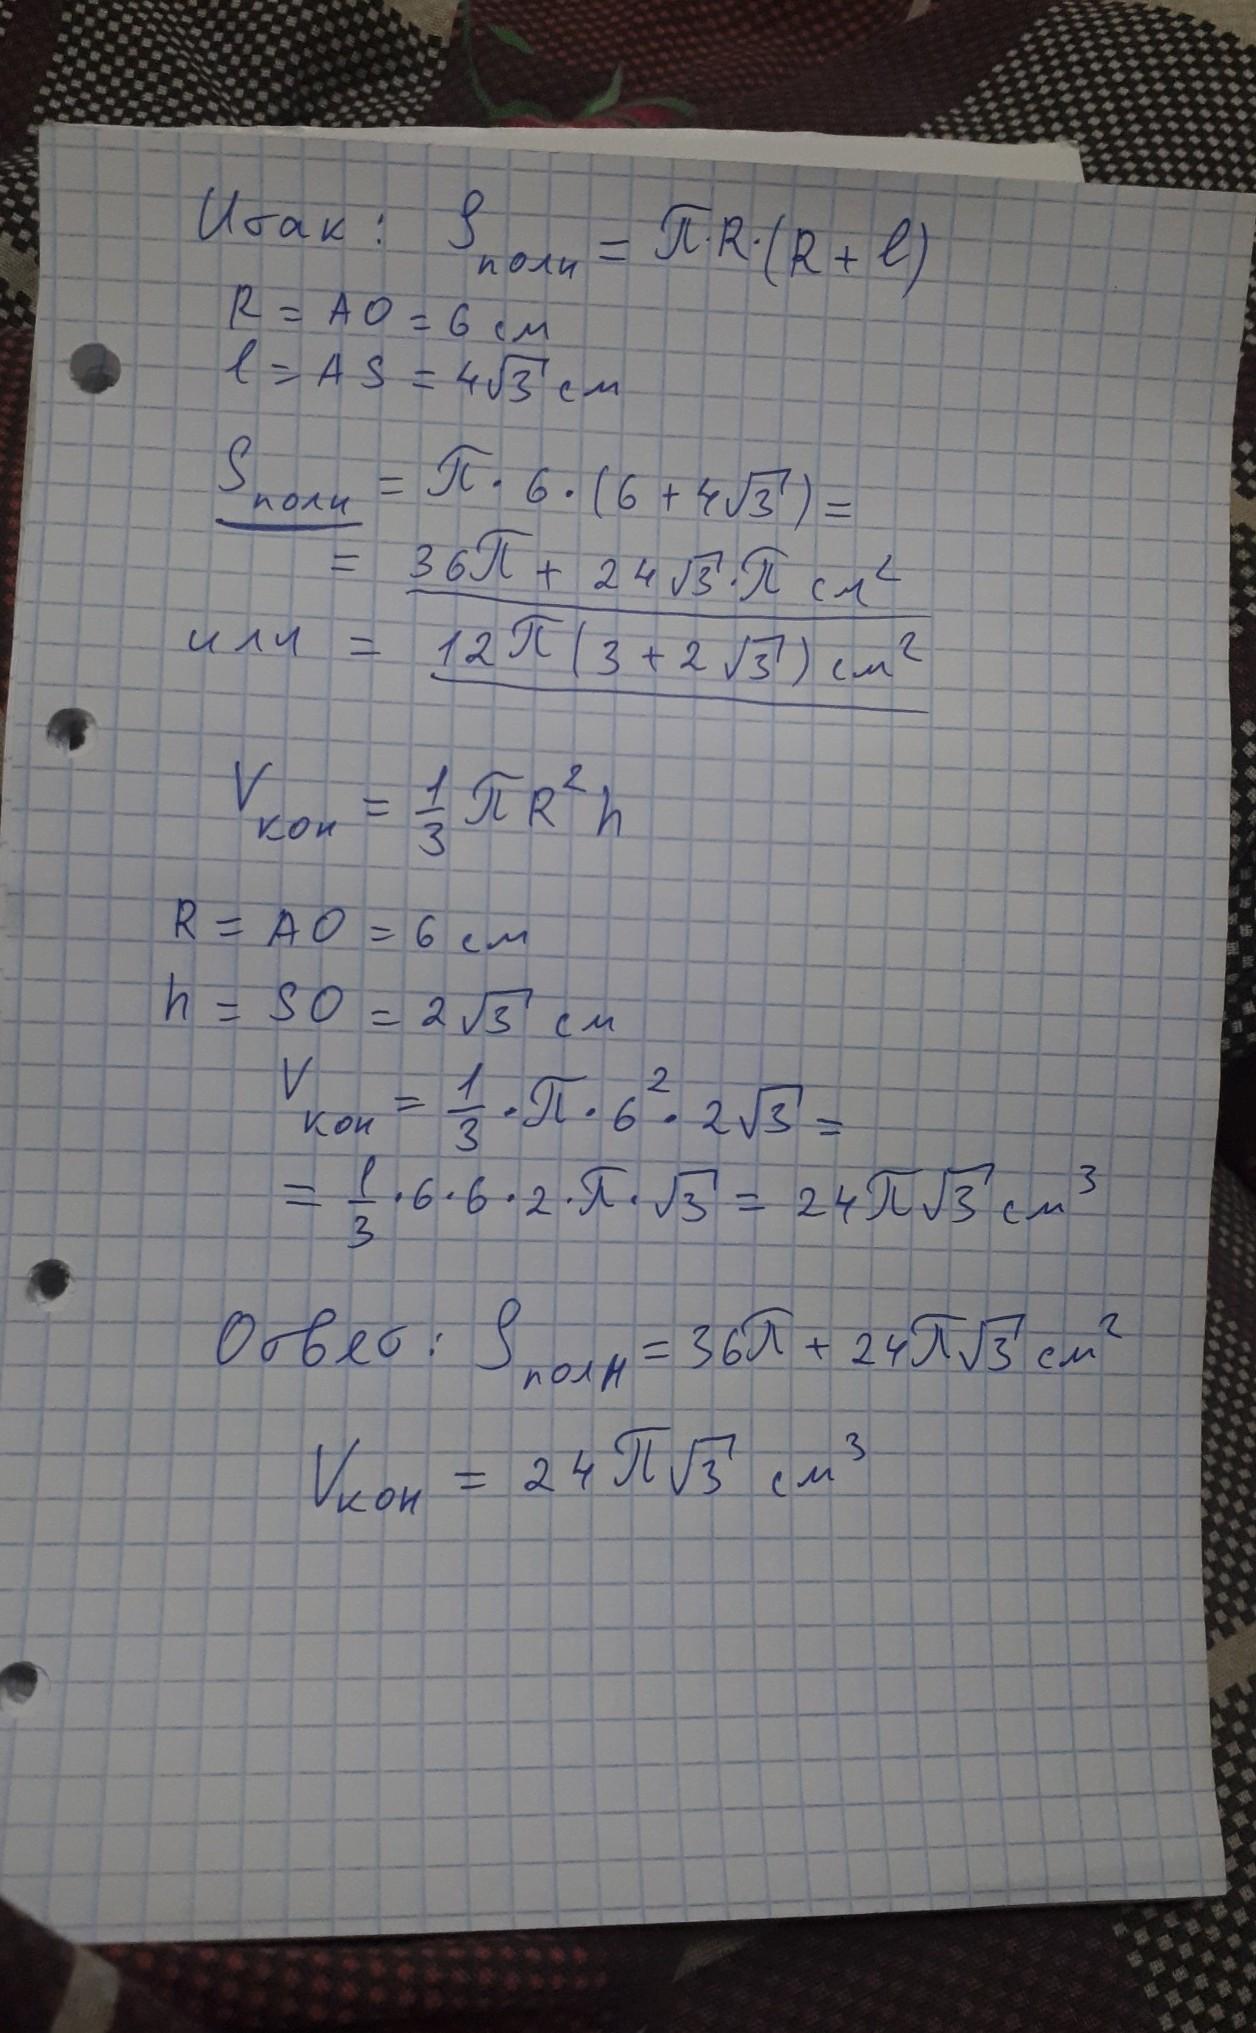 Итак: Sполн = π·R·(R + l)
R = AO = 6 см
l = AS = 4√3 см
Sполн = π · 6 · (6 + 4√3) =
= 36π + 24√3·π см²
или = 12π(3 + 2√3) см²
Vкон = 1/3 πR²h
R = AO = 6 см
h = SO = 2√3 см
Vкон = 1/3 · π · 6² · 2√3 =
= 1/3 · 6 · 6 · 2 · π · √3 = 24π√3 см³
Ответ: Sполн = 36π + 24π√3 см²
Vкон = 24π√3 см³